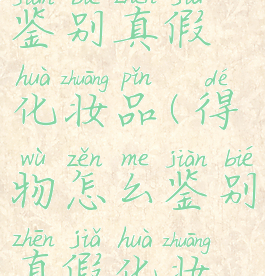 jiàn bié zhēn jiǎ
鉴别真假
huà zhuāng pǐn dé
化妆品(得
wù zěn me jiàn bié
物怎么鉴别
zhēn jiǎ huà zhuāng
真假化妆